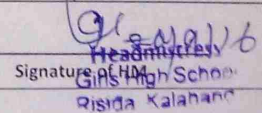 Headmistress
Signature of HM
Girls High School
Risida Kalahand